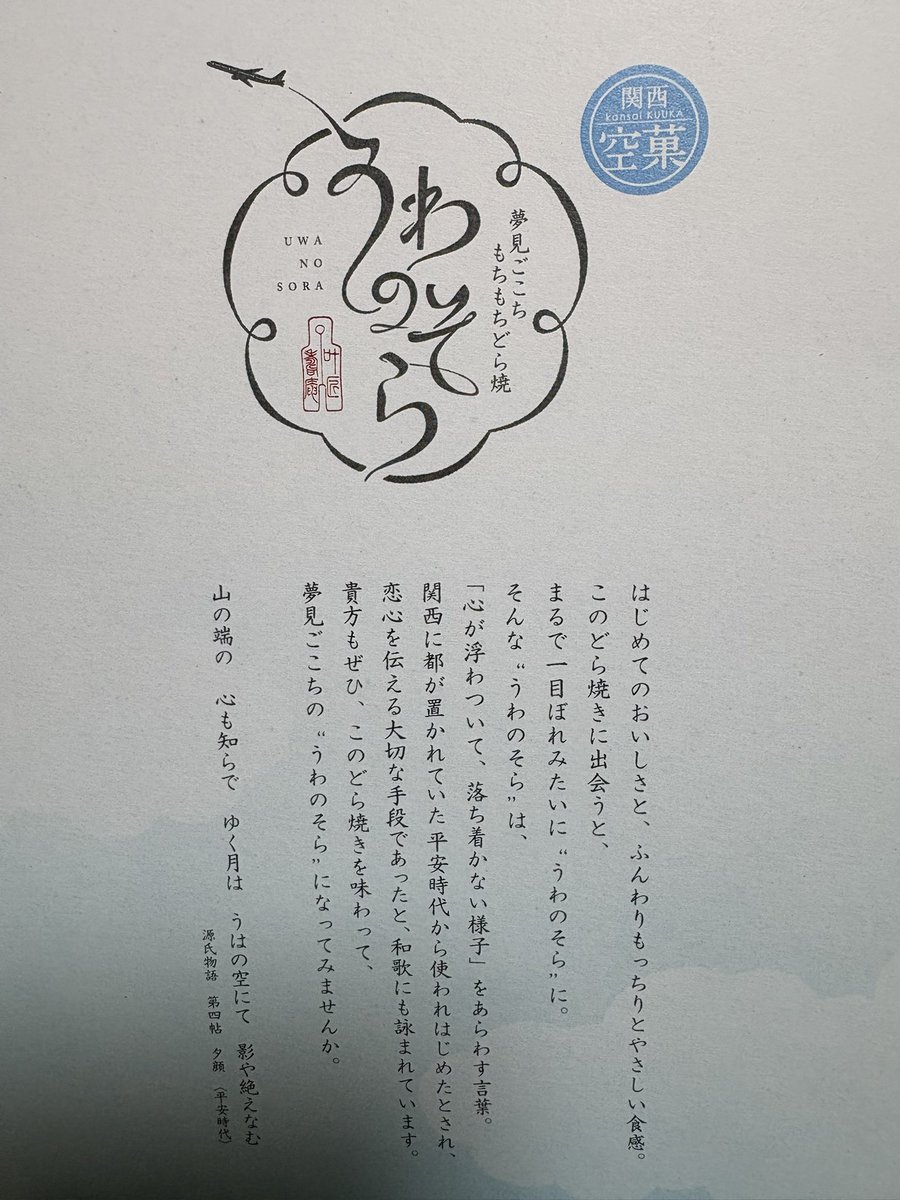 関西
kansai KUUKA
空菓
夢見ごこち
もちもちどら焼
うわ
のそら
UWA
NO
SORA
叶匠
壽庵
はじめてのおいしさと、ふんわりもっちりとやさしい食感。
このどら焼きに出会うと、
まるで一目ぼれみたいに“うわのそら”に。
そんな“うわのそら”は、
「心が浮わついて、落ち着かない様子」をあらわす言葉。
関西に都が置かれていた平安時代から使われはじめたとされ、
恋心を伝える大切な手段であったと、和歌にも詠まれています。
貴方もぜひ、このどら焼きを味わって、
夢見ごこちの“うわのそら”になってみませんか。
山の端の 心も知らで ゆく月は うはの空にて 影や絶えなむ
源氏物語 第四帖 夕顔 （平安時代）